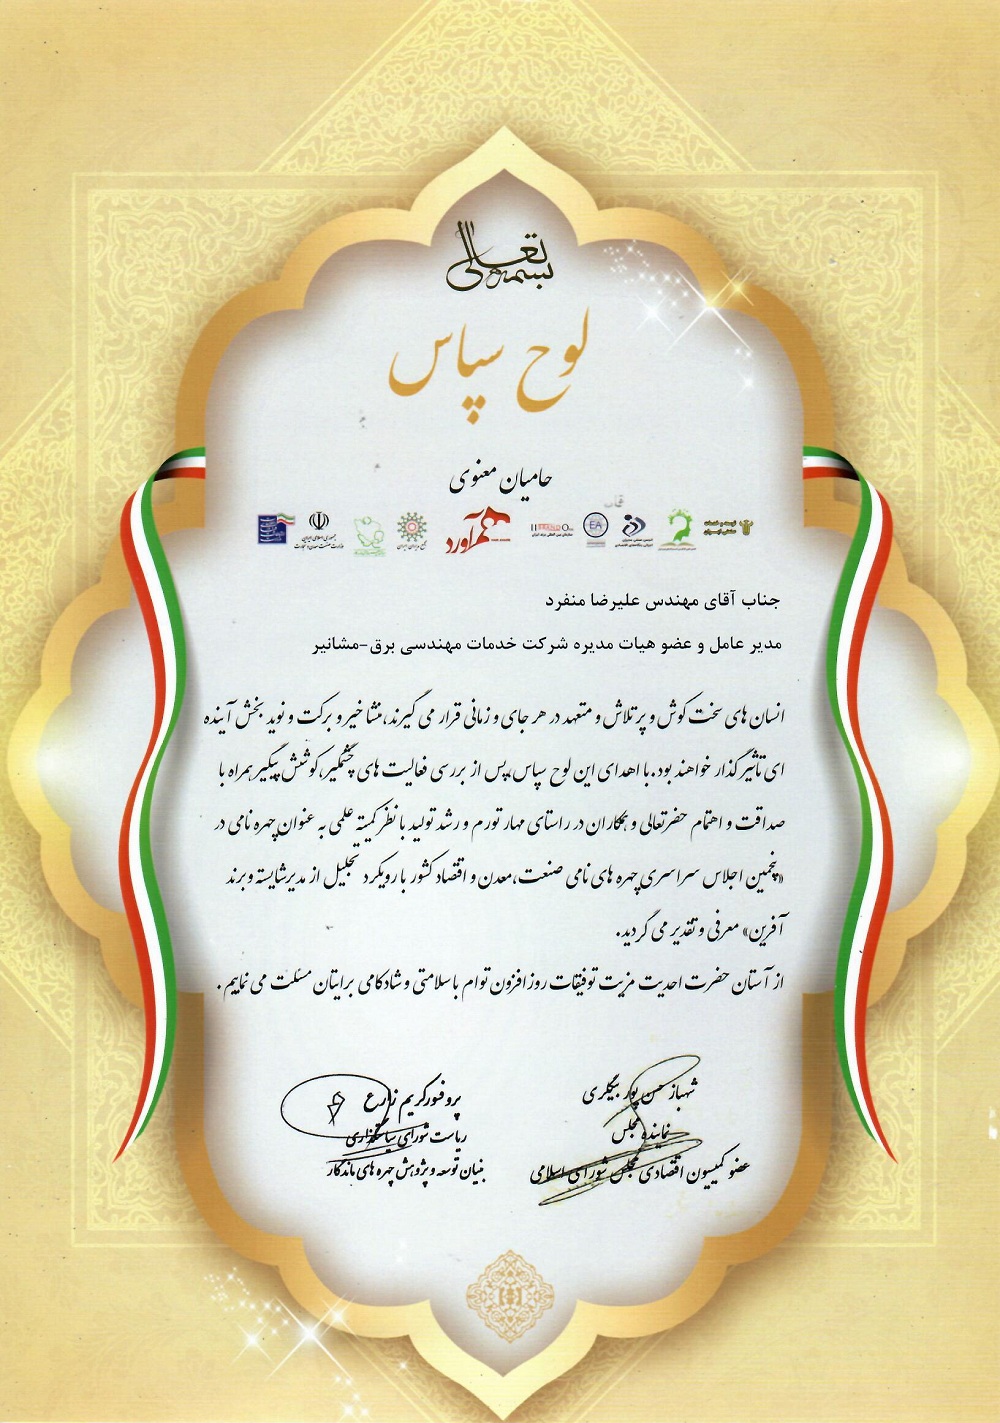 بسمه تعالی
لوح سپاس
حامیان معنوی
جناب آقای مهندس علیرضا منفرد
مدیر عامل و عضو هیات مدیره شرکت خدمات مهندسی برق-مشانیر
انسان های سخت کوش و پر تلاش و متعهد در هر جای و زمانی قرار می گیرند، منشا خیر و برکت و نوید بخش آینده
ای تاثیر گذار خواهند بود. با اهدای این لوح سپاس پس از بررسی فعالیت های چشمگیر، کوشش پیگیر همراه با
صداقت و اهتمام حضرتعالی و همکاران در راستای مهار تورم و رشد تولید با نظر کمیته علمی به عنوان چهره نامی در
«پنجمین اجلاس سراسری چهره های نامی صنعت، معدن و اقتصاد کشور با رویکرد تجلیل از مدیر شایسته و برند
آفرین» معرفی و تقدیر می گردید.
از آستان حضرت احدیت مزیت توفیقات روز افزون توام با سلامتی و شادکامی برایتان مسئلت می نماییم.
شهباز حسن پور بیگلری
نماینده مجلس
عضو کمیسیون اقتصادی مجلس شورای اسلامی
پروفسور کریم زارع
ریاست شورای سیاستگزاری
بنیان توسعه و پژوهش چهره های ماندگار